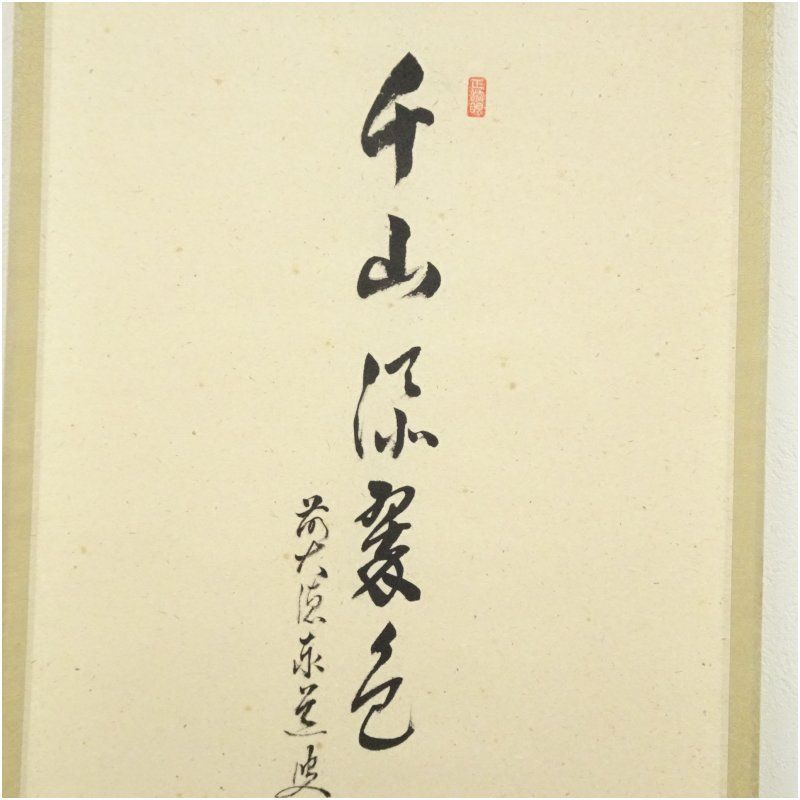 千山添翠色
前大徳泰道